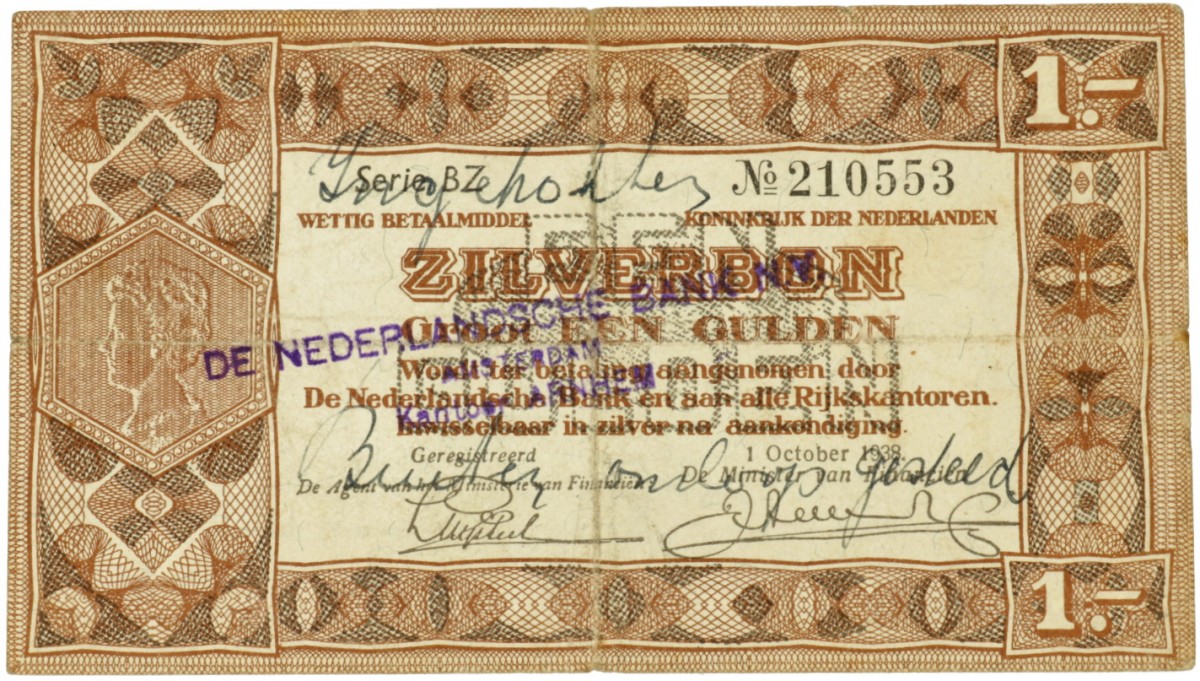 1.-
Serie BZ № 210553
WETTIG BETAALMIDDEL KONINKRIJK DER NEDERLANDEN
EEN
ZILVERBON
DE NEDERLANDSCHE BANK N.V.
Groot EEN GULDEN
AMSTERDAM
GULDEN
Wordt ter betaling aangenomen door
Kantoor ARNHEM
De Nederlandsche Bank en aan alle Rijkskantoren.
Inwisselbaar in zilver na aankondiging.
Geregistreerd 1 October 1938.
Buiten omloop gesteld
De Agent van het Ministerie van Financiën De Minister van Financiën
1.-